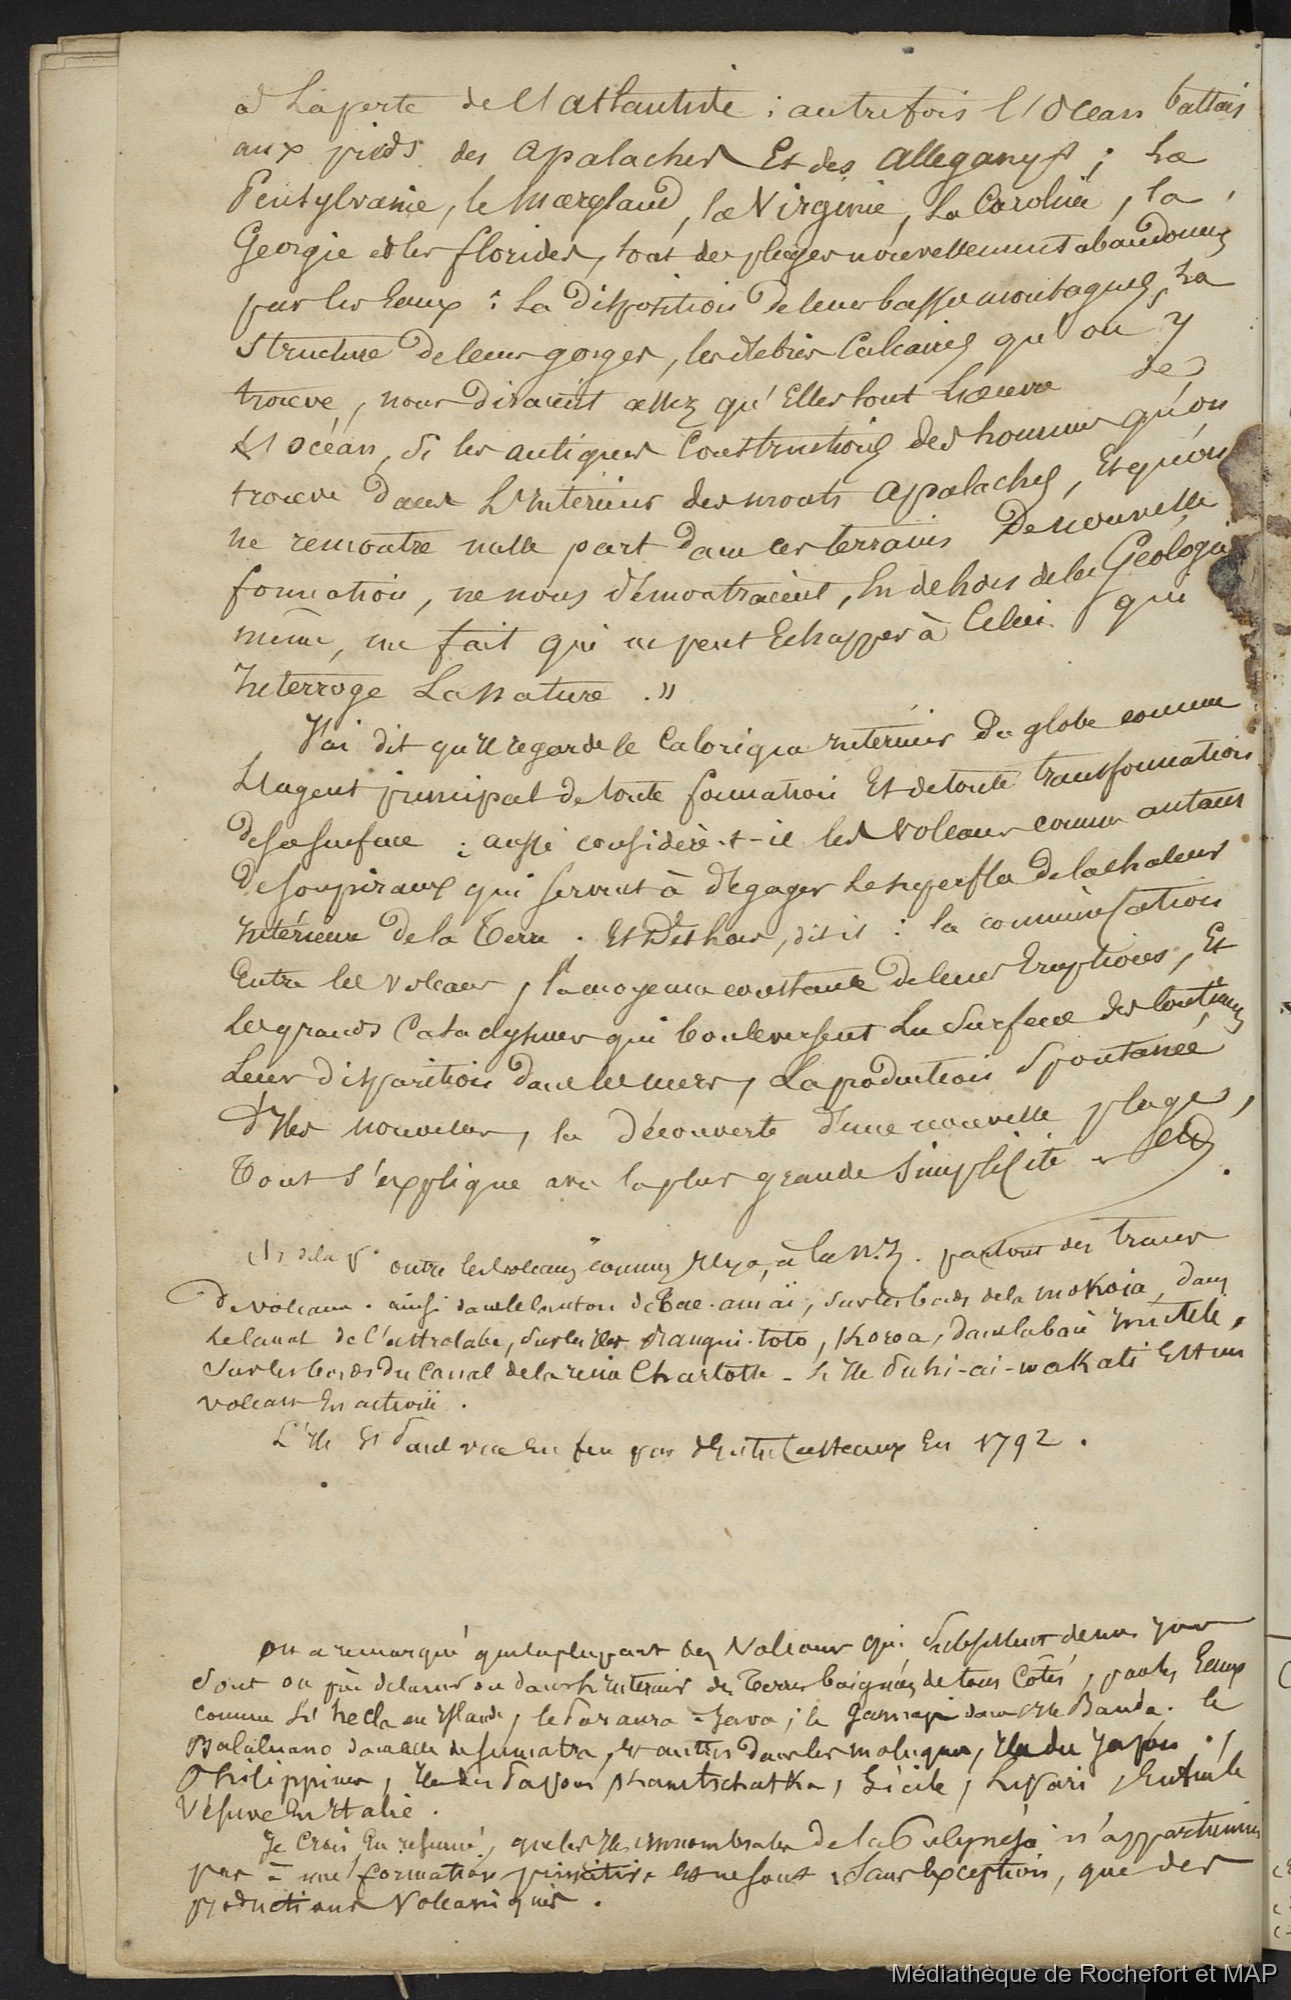 à la perte de l'atlantide : autrefois l'Ocean battais
aux pieds des apalaches Et des alleganys ; La
Pensylvanie, le Maryland, la Virginie, La Caroline, la
Georgie et les florides, sont des plages nouvellement abandonnés
par les Eaux : La disposition de leurs basses montagnes, La
Structure de leurs gorges, les debris Calcaires qu'on y
trouve, nous diraient assez qu'Elles sont L'oeuvre de
L'océan, si les antiques Constructions des hommes qu'on
trouve dans L'interieur des monts apalaches, Et qu'on
ne remontre nulle part dans ces terrains de nouvelle
formation, ne nous démontraient, En dehors de la Géologie
même, un fait qui ne peut Echapper à Celui qui
Interroge La Nature . »
J'ai dit qu'il regarde le Calorique interieur du globe comme
L'agent principal de toute formation Et de toute transformation
de sa surface ; aussi considère-t-il les Volcans comme autant
de soupiraux qui servent à dégager Le superflu de la chaleur
Intérieure de la Terre . Et Dès lors, dit il : la communication
Entre les Volcans, la moyenne constante de leurs Eruptions, Et
Les grands Cataclysmes qui bouleversent La Surface des Continens
Leur disparition dans les mers, La production Spontanée
d'Iles nouvelles, la découverte d'une nouvelle plage,
Tout s'explique avec la plus grande Simplicité .
outre les volcans connus Il y a, à la N. Z. partout des traces
de volcans . ainsi dans le Canton de Tae-amaï, sur les bords de la mokoia, dans
Le Canal de l'astrolabe, sur les Iles Rangui-toto, Koroa, dans la baie Inutile,
Sur les bords du Canal de la reine Charlotte - L'Ile Puhi-ai-wakati Est un
volcan En activité .
L'Ile St Paul vue En feu par d'Entrecasteaux En 1792 .
on a remarqué que la plupart des Volcans qui Subsistent de nos jours
Sont ou près de la mer ou dans L'interieur des Terres baignées de tous Côtés, par les Eaux
comme L'hecla en Islande, le Paraura à Java ; le Gannapi dans l'Ile Banda . le
Balaluano dans celle de sumatra, et autres dans les moluques, Iles du Japon .,
Philippines, Iles du Japon, Kamtschatka, Sicile, Lipari, Enfin le
Vésuve En Italie .
Je Crois En resumé, que les Iles innombrables de la Polynésie n'appartiennent
pas à une formation primitive et ne sont, Sans Exception, que des
productions Volcaniques .
Médiathèque de Rochefort et MAP